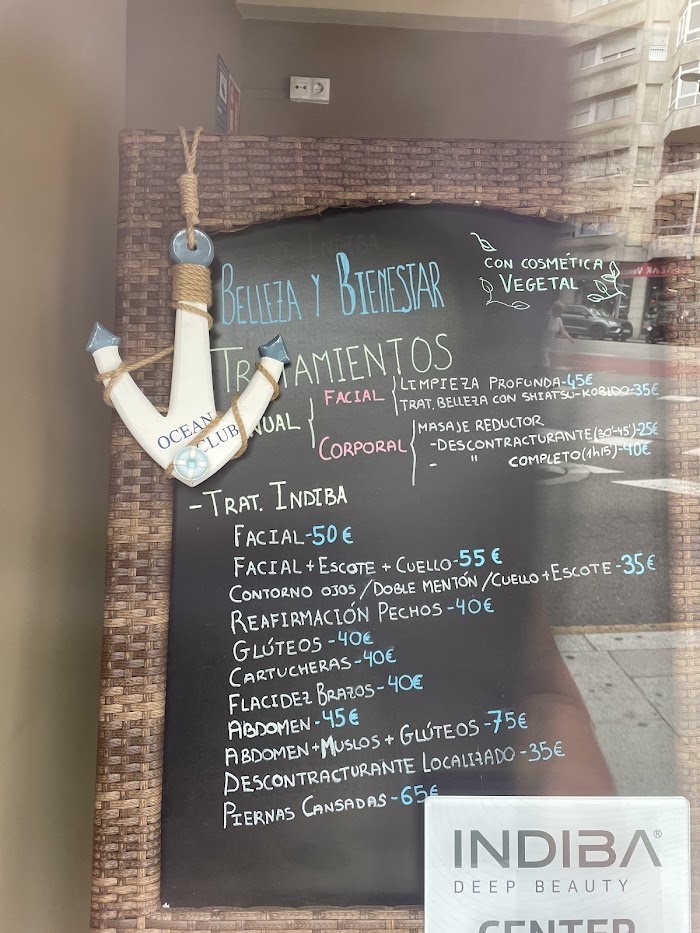 BELLEZA Y BIENESTAR
CON COSMÉTICA
VEGETAL
TRATAMIENTOS
FACIAL
LIMPIEZA PROFUNDA-45€
TRAT. BELLEZA CON SHIATSU-KOBIDO-35€
CORPORAL
MASAJE REDUCTOR
-DESCONTRACTURANTE(30'-45')-25€
- " COMPLETO(1h15')-40€
OCEAN
CLUB
-TRAT. INDIBA
FACIAL-50€
FACIAL+ESCOTE+CUELLO-55€
CONTORNO OJOS/DOBLE MENTÓN/CUELLO+ESCOTE-35€
REAFIRMACIÓN PECHOS-40€
GLÚTEOS-40€
CARTUCHERAS-40€
FLACIDEZ BRAZOS-40€
ABDOMEN-45€
ABDOMEN+MUSLOS+GLÚTEOS-75€
DESCONTRACTURANTE LOCALIZADO-35€
PIERNAS CANSADAS-65€
INDIBA®
DEEP BEAUTY
CENTER